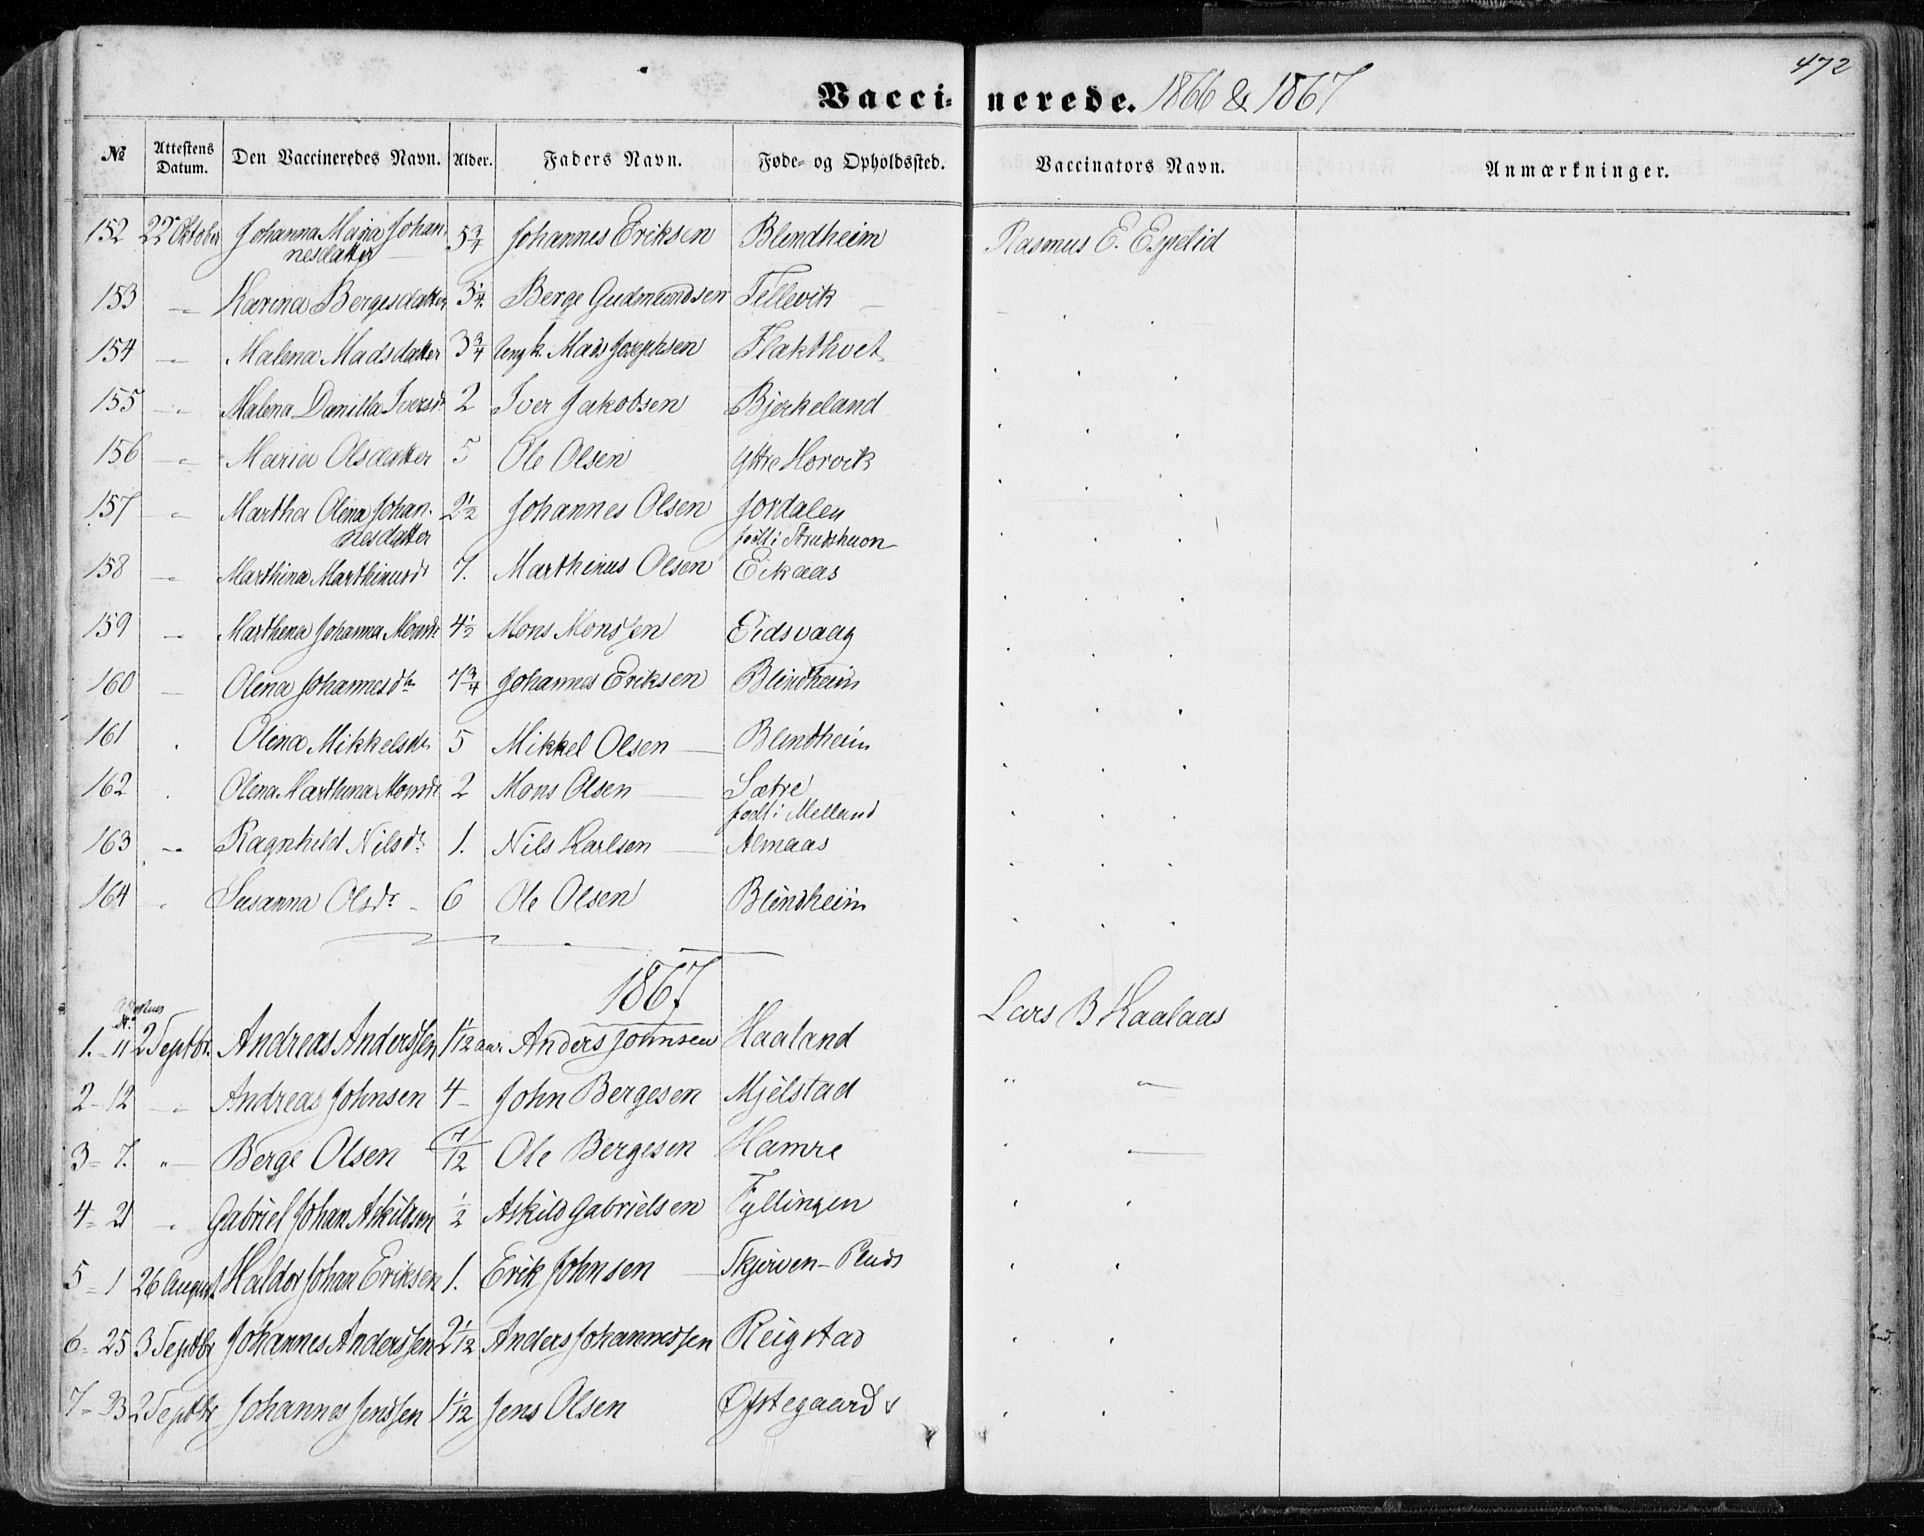 472
Vaccinerede. 1866 & 1867
№ Attestens Datum. Den Vaccineredes Navn. Alder. Faders Navn. Føde- og Opholdssted. Vaccinators Navn. Anmærkninger.
152 22 Oktober Johanna Maria Johan 5 3/4 Johannes Eriksen Blendheim Rasmus E. Espelid
nesdatter
153 " Karina Bergesdatter 3 1/4 Berge Gudmundsen Tellevik
154 " Malena Madsdatter 3 3/4 Ungk. Mads Josephsen Flakthvet
155 " Malena Danilla Iversdr 2 Iver Jakobsen Bjerkeland
156 " Maria Olsdatter 5 Ole Olsen Yttre Horvik
157 " Martha Olena Johan- 2 1/2 Johannes Olsen Jordalen
nesdatter født i
158 " Marthina Marthinusdr 7. Marthinus Olsen Eikaas
159 " Marthena Johanna Monsdr 4 1/2 Mons Monssen Eidsvaag
160 Olena Johannesdtr 4 3/4 Johannes Eriksen Blindheim
161 " Olina Mikkelsdr 5 Mikkel Olsen Blendheim
162 . Olena Marthina Monsdr 2 Mons Olsen Sætre
født i Melland
163 " Ragnhild Nilsdr 1. Nils Karlsen Almaas
164 " Susanna Olsdr 6 Ole Olsen Blindheim
1867
Lars B Kaalaas
1. - 11 2 Septbr. Andreas Anderssen 1 1/12 aar Anders Johnsen Haaland
2 - 12 " Andreas Johnsen 4 - John Bergesen Mjelstad " "
3 - 7. " Berge Olsen 7/12 Ole Bergesen Hamre
4 - 21 " Gabriel Johan Askildsen 1/2 Askild Gabrielsen Fyllingen
5 - 1 26 August Haldor Johan Eriksen 1. Erik Johnsen Skjerven-
6 - 25 3 Septbr Johannes Anderssen 2 1/12 Anders Johannessen Reigstad
7 - 33 2 Septbr Johannes Jenssen 1 1/12 Jens Olsen Østegaards